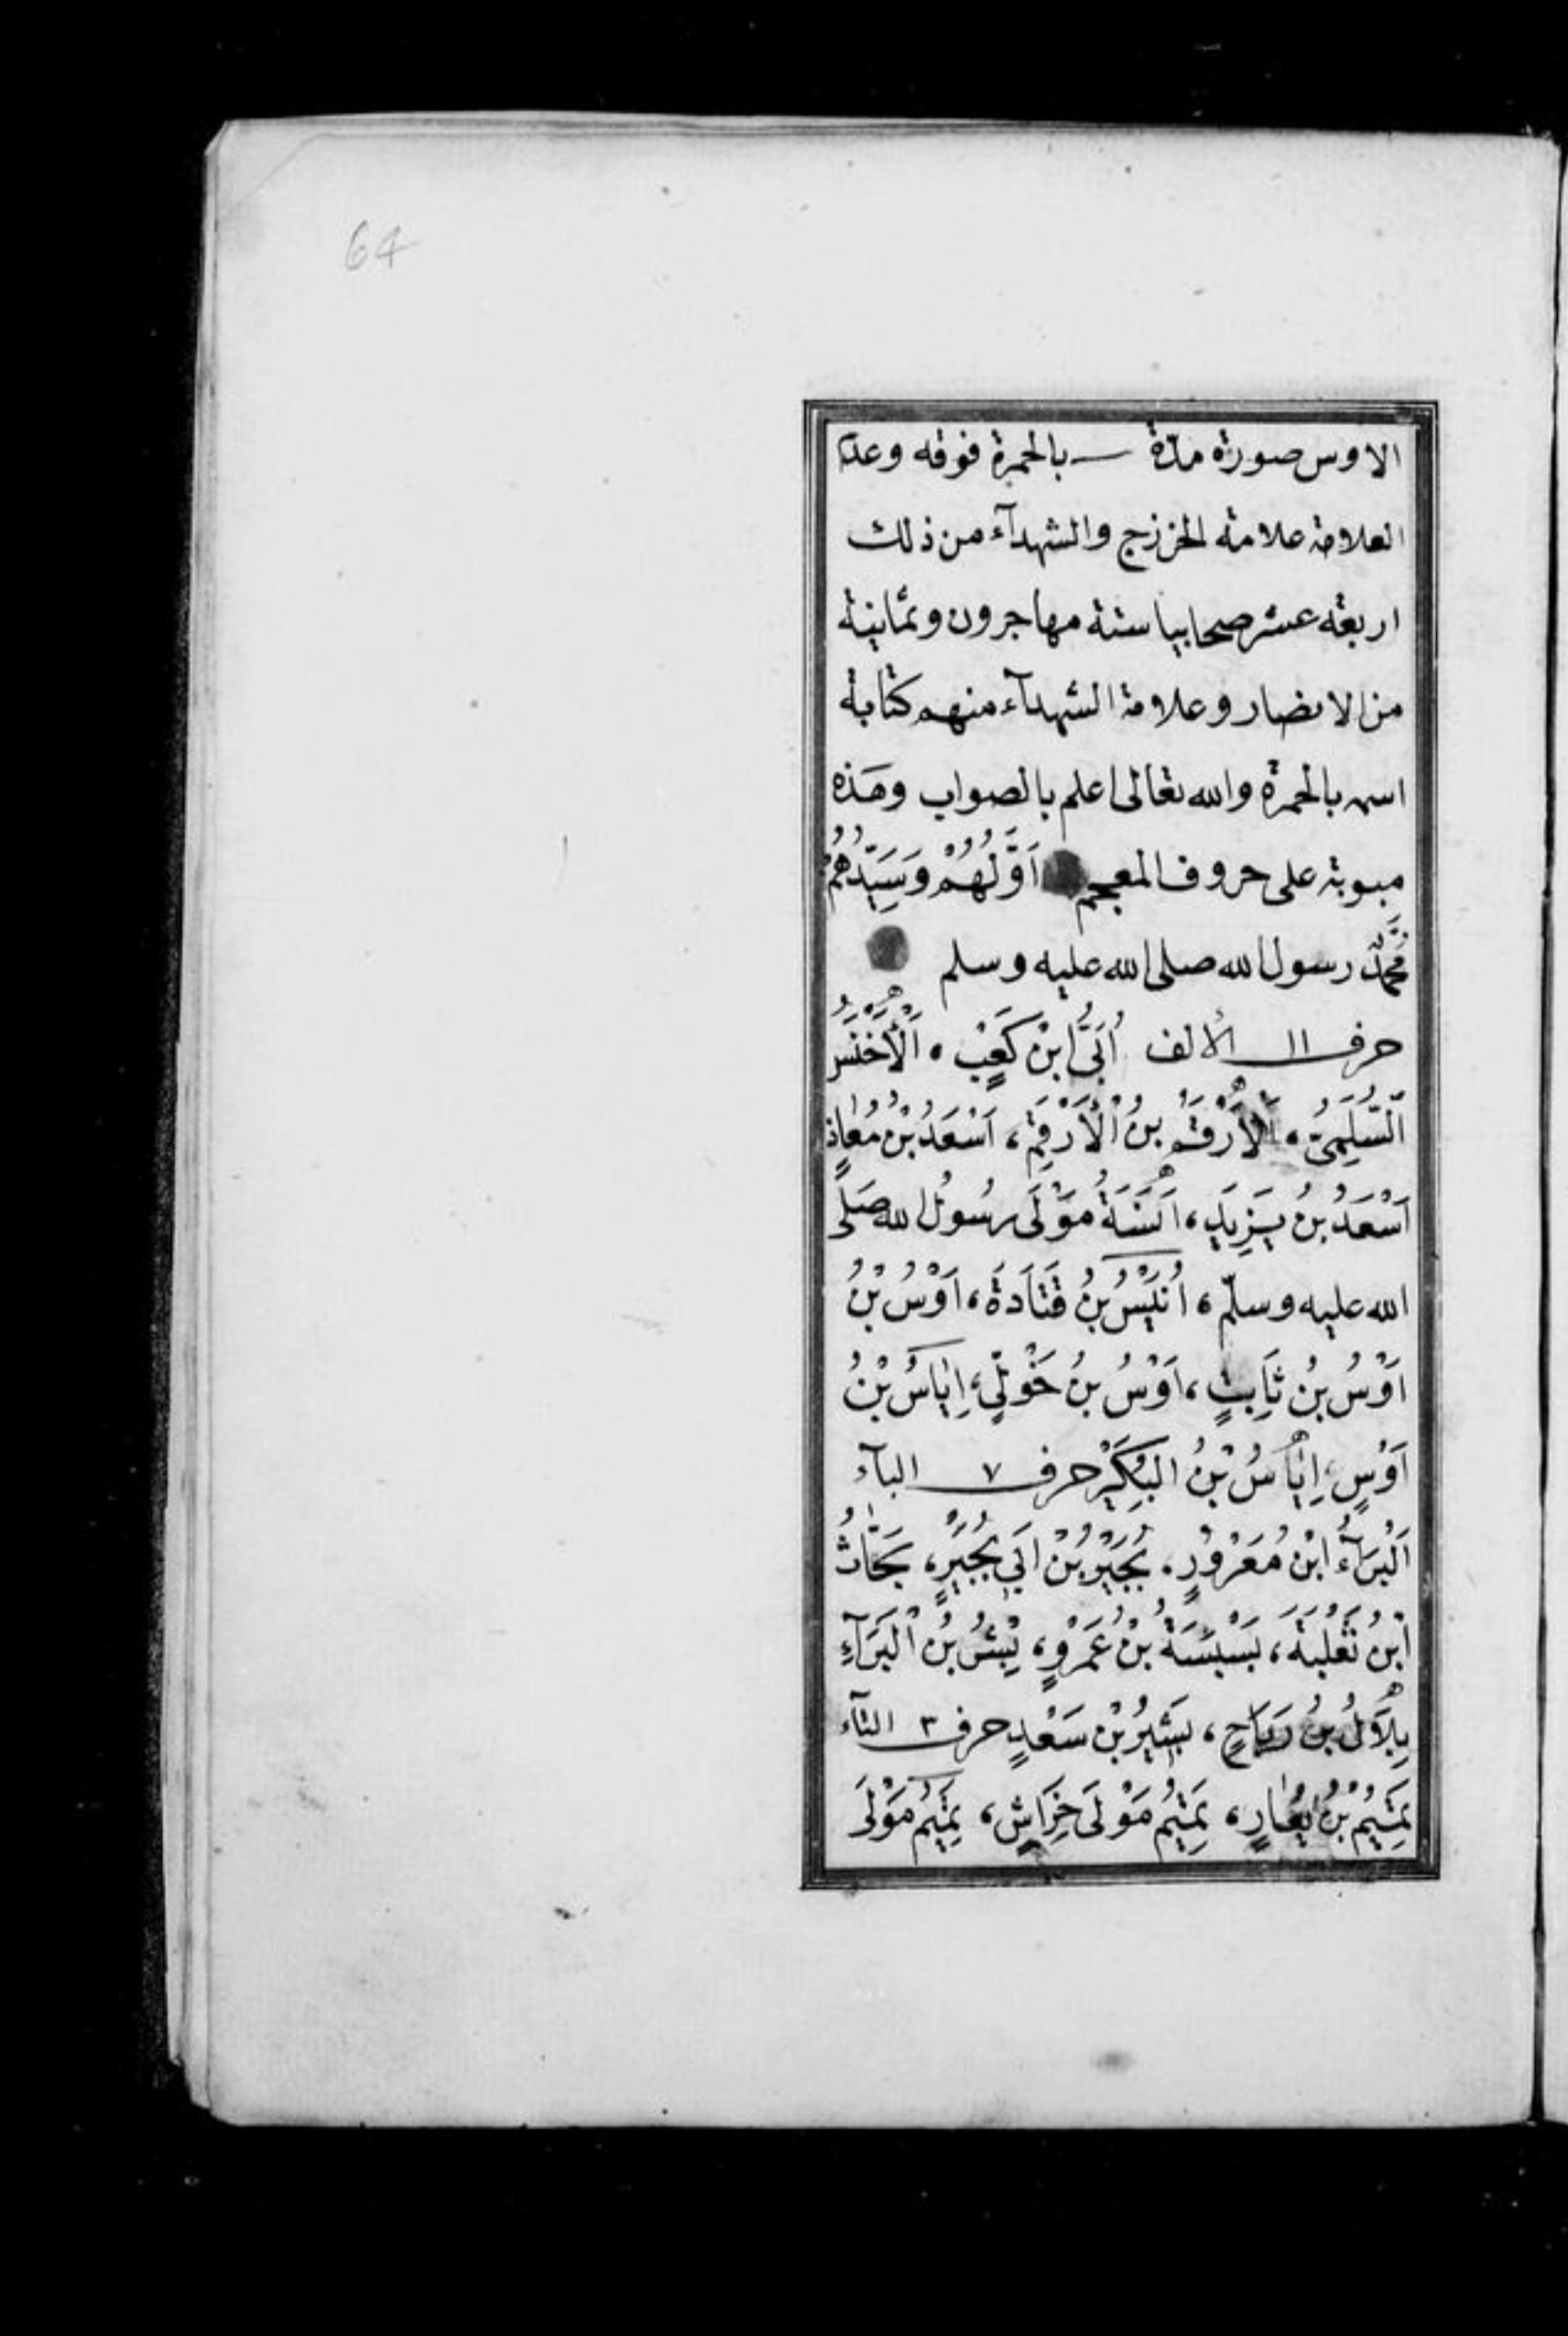 64
الاوس صورة مدة ــ بالحمرة فوقه وعدم
العلامة علامة الخزرج والشهدآء من ذلك
اربعة عشر صحابيا ستة مهاجرون وثمانية
من الانصار وعلامة الشهدآء منهم كتابة
اسمه بالحمرة والله تعالى اعلم بالصواب وهذه
مبوبة على حروف المعجم اَوَّلُهُمْ وَسَيِّدُهُمْ
مُحَمَّدٌ رسول الله صلى الله عليه وسلم
حرف ١١ الألف اُبَىُّ ابْنُ كَعْبٍ ، اَلْاَخْنَسُ
السُّلَمِىُّ ، اَلْاَرْقَمُ بْنُ الْاَرْقَمِ ، اَسْعَدُ بْنُ مُعَاذٍ
اَسْعَدُ بْنُ يَزِيدٍ ، اَنَسَةُ مَوْلَى رَسُولُ الله صَلَى
الله عليه وسلّم ، اُنَيْسُ بْنُ قَتَادَةَ ، اَوْسُ بْنُ
اَوْسُ بْنُ ثَابِتٍ ، اَوْسُ بْنُ خَوْلِيٍّ ، اِيَاسُ بْنُ
اَوْسٍ ، اِيَاسُ بْنُ البُكَيْرِ حرف ٧ البآء
اَلْبَرَآءُ ابْنُ مَعْرُوْرٍ ، بُجَيْرُ بْنُ اَبِي بُجَيْرٍ ، بَحَّاثُ
ابْنُ ثَعْلَبَةَ ، بَسْبَسَةُ بْنُ عَمْرٍو ، بِشْرُ بْنُ الْبَرَآءِ
بِلَالُ بْنُ رَبَاحٍ ، بَشِيرُ بْنُ سَعْدٍ حرف ٣ التآء
تَمِيْمُ بْنُ يُعَارٍ ، تَمِيْمُ مَوْلَى خِرَاشٍ ، تَمِيْمُ مَوْلَى